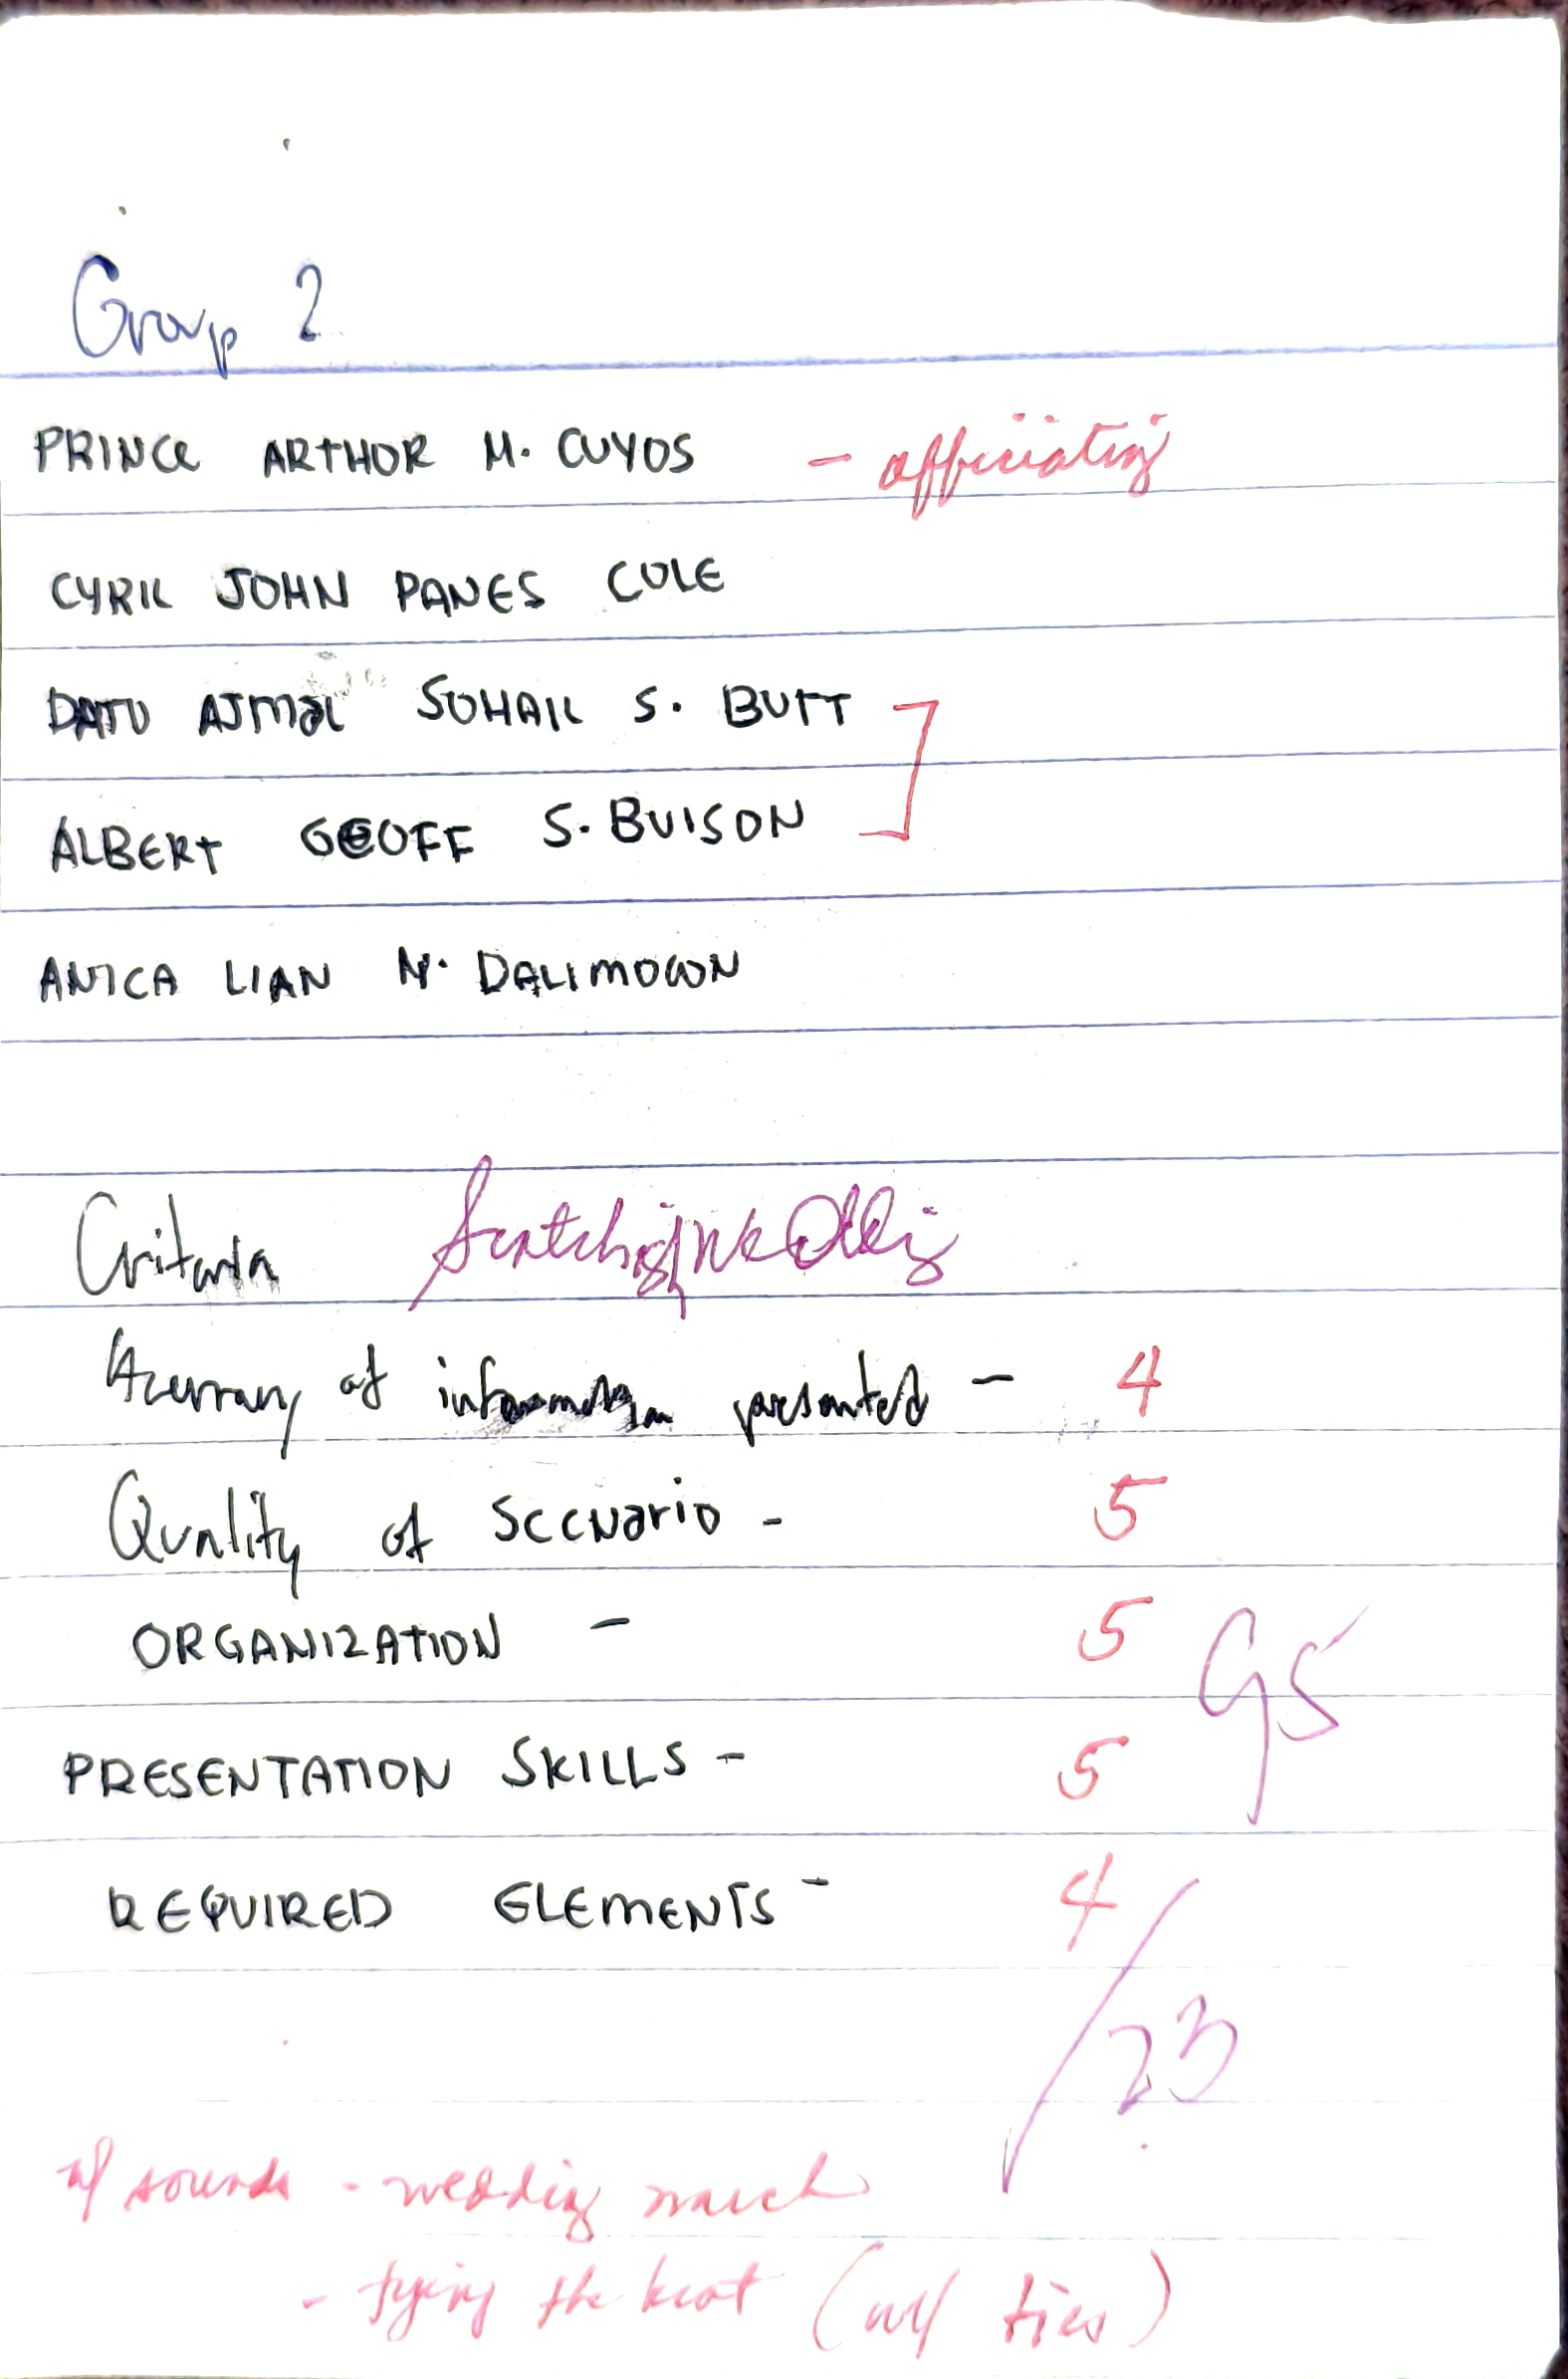 Group 2
PRINCE ARTHUR M. CUYOS - officiating
CYRIL JOHN PANES COLE
DATU AJMAL SOHAIL S. BUTT
ALBERT GEOFF S. BUISON
ANICA LIAN N. DALIMOCON
Criteria Scottish Wedding
Accuracy of information presented - 4
Quality of Scenario - 5
ORGANIZATION - 5
95
PRESENTATION SKILLS - 5
REQUIRED ELEMENTS - 4
/23
w/ sounds - wedding march
- tying the knot (w/ ties)